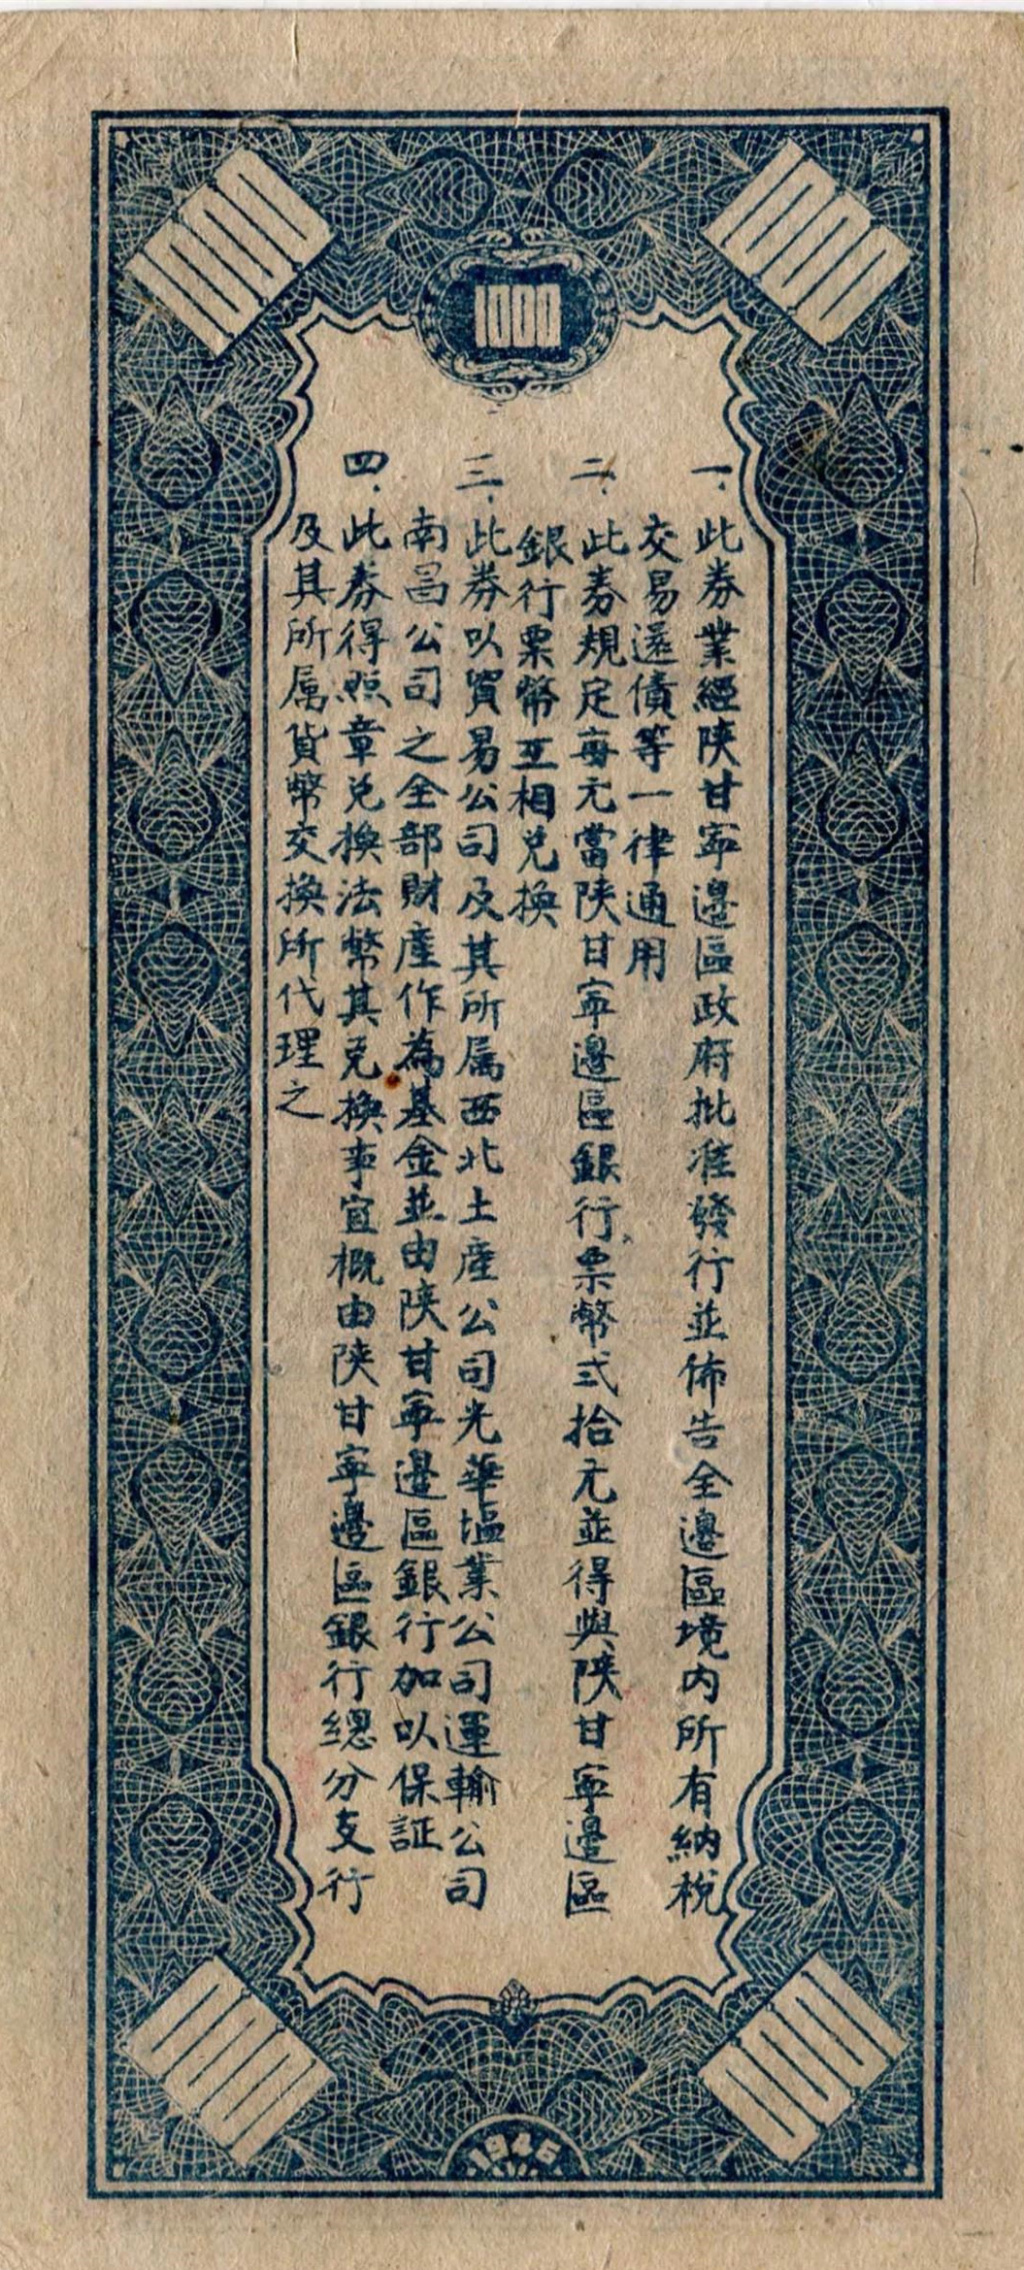 1000
1000
1000
一、此券業經陝甘寧邊區政府批准發行並佈告全邊區境内所有納稅
交易還債等一律通用
二、此券規定每元當陝甘寧邊區銀行票幣弍拾元並得與陝甘寧邊區
銀行票幣互相兑換
三、此券以貿易公司及其所属西北土産公司光華塩業公司運輸公司
南昌公司之全部財産作為基金並由陝甘寧邊區銀行加以保証
四、此券得照章兑換法幣其兑換事宜概由陝甘寧邊區銀行總分支行
及其所属貨幣交換所代理之
1000
1000
1945